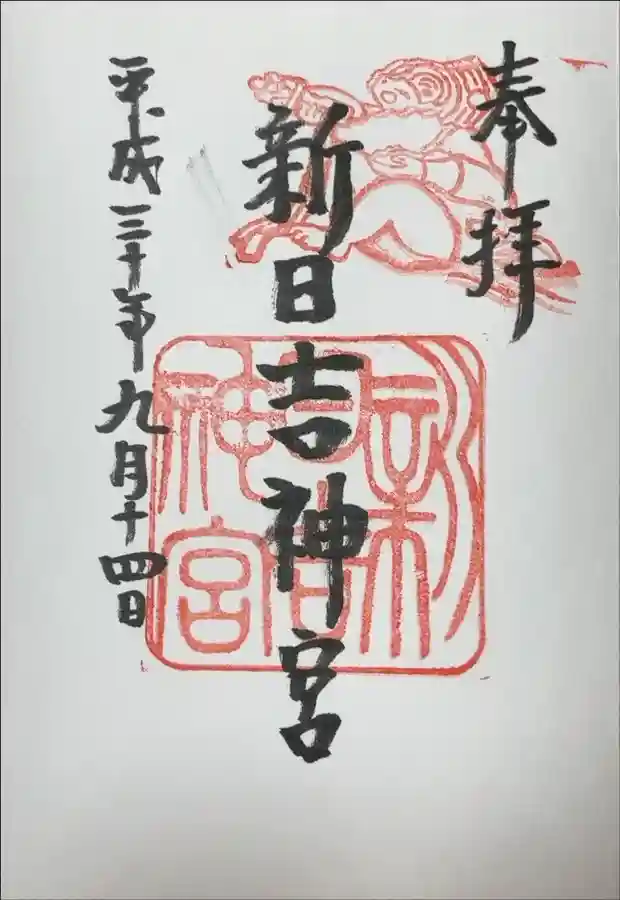 奉拝
新日吉神宮
平成三十年九月十四日
新日吉神宮